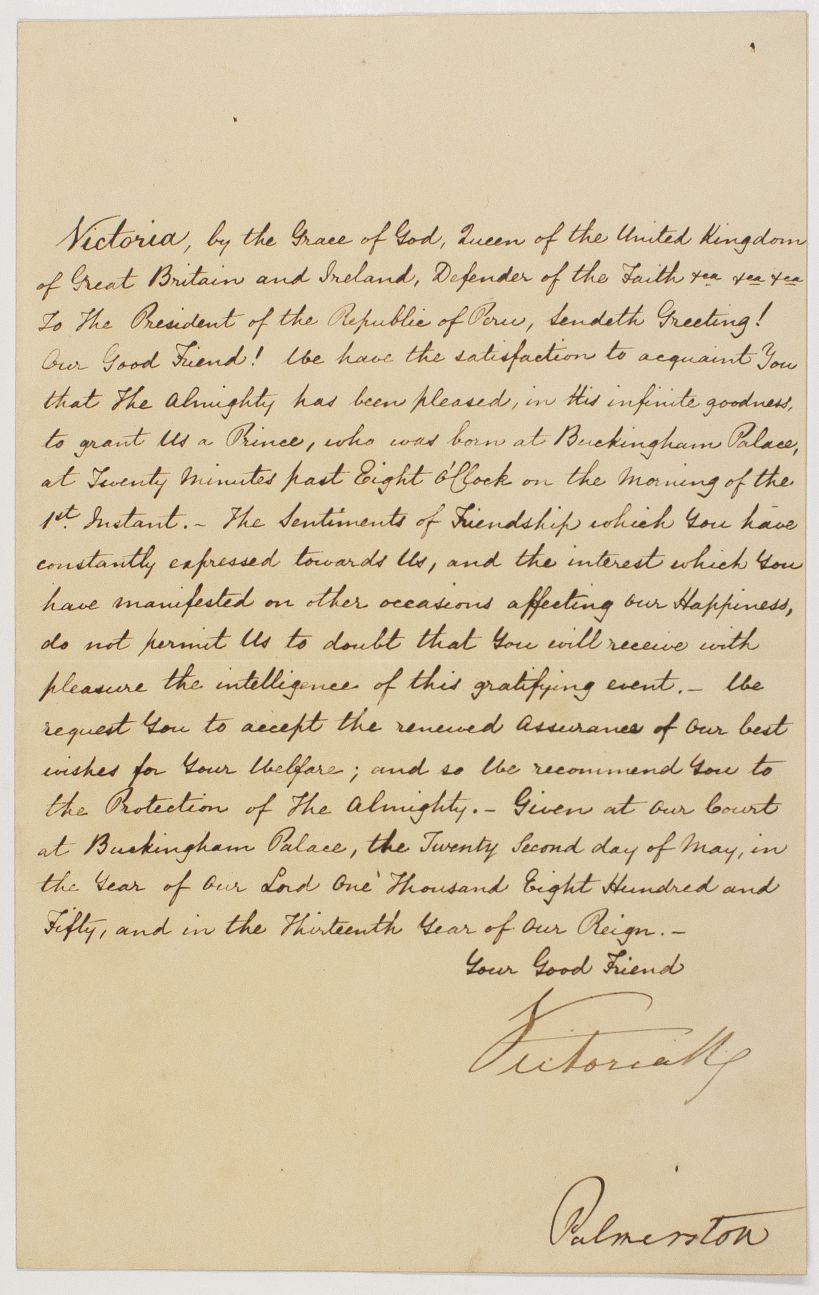 Victoria, by the Grace of God, Queen of the United Kingdom
of Great Britain and Ireland, Defender of the Faith &ca &ca &ca
To The President of the Republic of Peru, Sendeth Greeting!
Our Good Friend! We have the satisfaction to acquaint You
that The Almighty has been pleased, in His infinite goodness,
to grant Us a Prince, who was born at Buckingham Palace,
at Twenty Minutes past Eight O'Clock on the Morning of the
1st. Instant. – The Sentiments of Friendship which You have
constantly expressed towards Us, and the interest which You
have manifested on other occasions affecting Our Happiness,
do not permit Us to doubt that You will receive with
pleasure the intelligence of this gratifying event. – We
request You to accept the renewed Assurance of Our best
wishes for Your Welfare; and so We recommend You to
the Protection of The Almighty. – Given at Our Court
at Buckingham Palace, the Twenty Second day of May, in
the Year of Our Lord One Thousand Eight Hundred and
Fifty, and in the Thirteenth Year of Our Reign. –
Your Good Friend
Victoria R
Palmerston